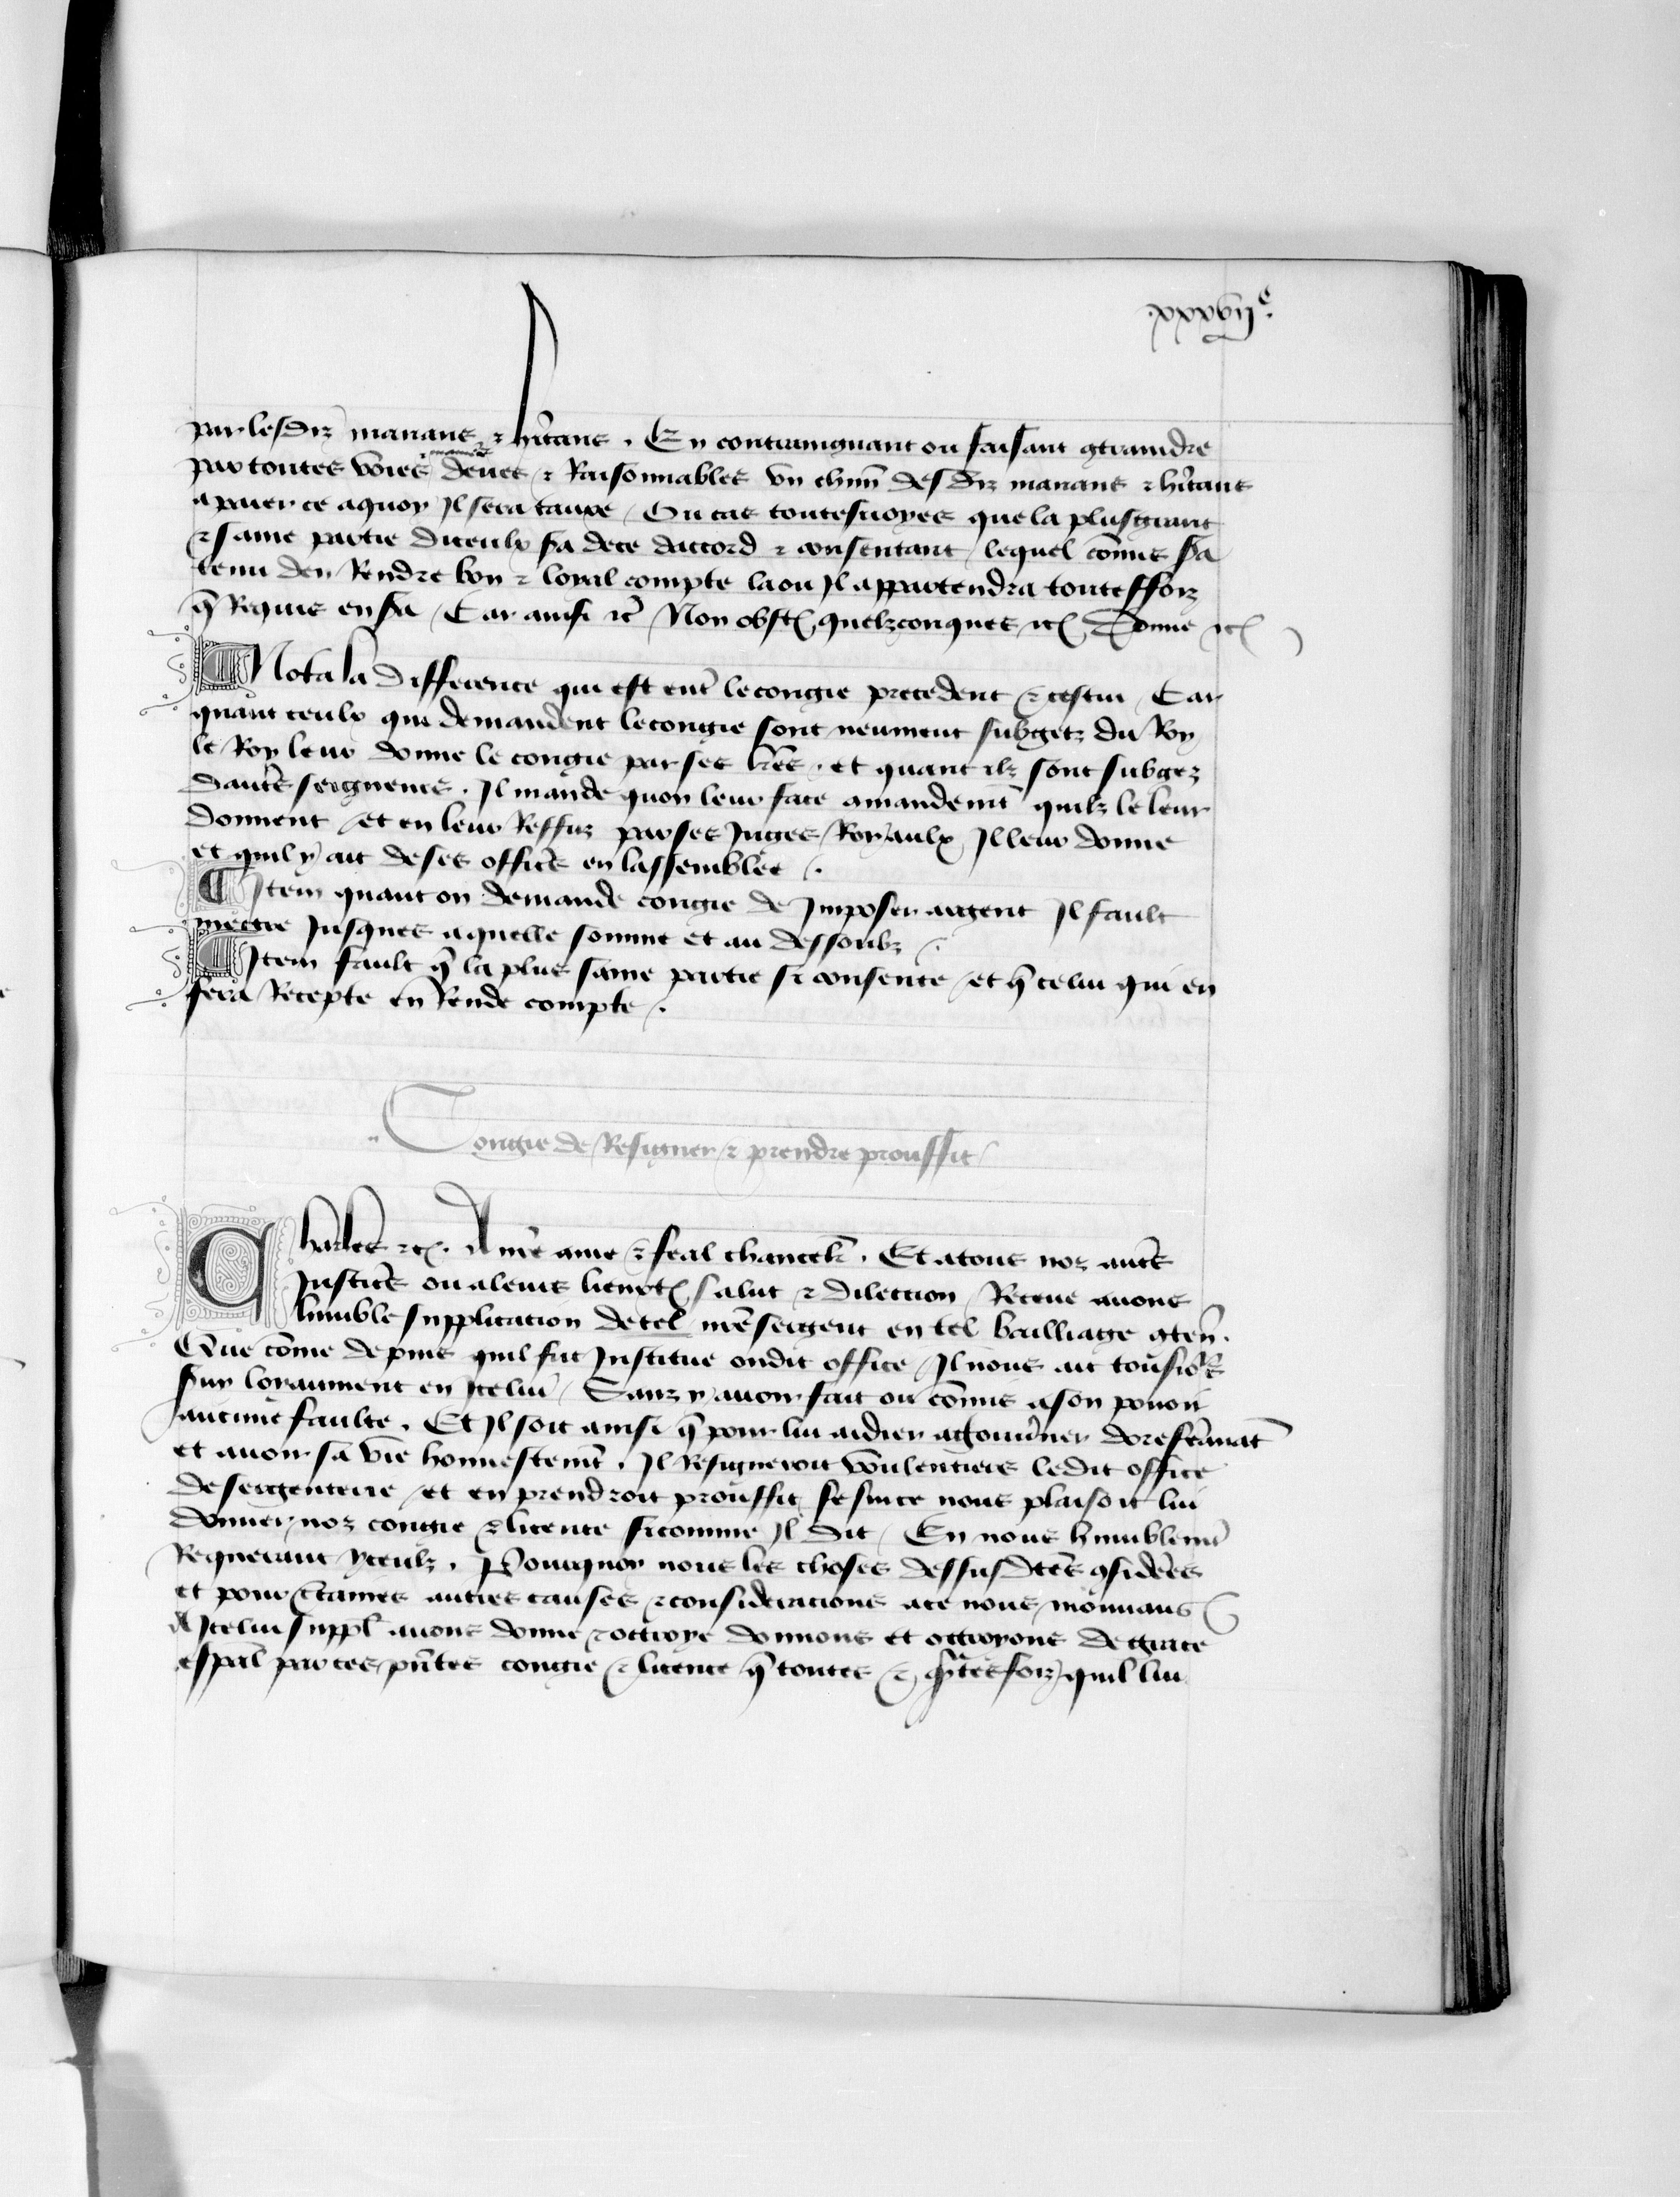 .xxxvij.e
par lesdiz manans ⁊ hītans . En contraingnant ou faisant ɔtraindre
par toutes voies ⁊ manieres deues ⁊ Raisonnables vn chūn desdiz manans ⁊ hītans
a paier ce aquoy Il sera tauxe / Ou cas toutesuoyes que la plusgrant
⁊ saine partie diceulx sa dece daccord ⁊ consentant / lequel cōmis sa
tenu den Rendre bon ⁊ loyal compte la ou Il appartendra toutesfoiz
q̄ Requis en sa / Car ainsi ⁊c̄ / Non obst quelzconques ⁊c̄ Donne ⁊c̄
Nota la difference qui est ent̄ le congie precedent ⁊ cestui / Car
quant ceulx qui demandent le congie sont neument subgetz du Roy
le Roy leur donne le congie par ses lr̄es . et quant ilz sont subgez
dautēs seigneurs . Il mande quon leur face amandemt̄ quilz le leur
donnent / et en leur Reffuz par ses Juges Royaulx Il leur donne
et quil y ait de ses officēs en lassemblee /.
Item quant on demande congie de Imposer argent Il fault
mectre Jusques a quelle somme et au dessoubz /.
Item fault q̄ la plus saine partie si consente / et q̄ celui qui en
fera Recepte en Rende compte /.
Congie de Resigner ⁊ prendre prouffit /
Charles ⁊c̄. A nr̄e ame ⁊ feal chancelr̄ . Et a tous noz autēs
Justicēs ou a leurs lieuxt̄ salut ⁊ dilection / Receue auons
lumble supplication de tel nr̄e sergent en tel bailliage ɔten̄ .
Que cōme depuis quil fut Institue oudit office / Il nous ait tousio's
s̄uy loyaument en Icelui / Sanz y auoir fait ou cōmis a son pouoir
aucune faulte . Et Il soit ainsi q̄ pour lui aidier a gouūner doresēnauāt
et auoir sa vie honnestemt̄ . Il Resigneroit voulentiers ledit office
de sergenterie / et en prendroit prouffit se sur ce nous plaisoit lui
donner noz congie ⁊ licence sicomme Il dit / En nous humblemt̄
Requerant yceulz . Pourquoy nous les choses dessusdtēs ɔsiderēs
et pour c̄taines autres causes ⁊ consideracions a ce nous mouuans
A Icelui suppl̄ auons donne ⁊ octroye donnons et octroyons de grace
esp̄al par ces pn̄tes congie ⁊ licence q̄ toutes ⁊ q̄ntesfoiz quil lui